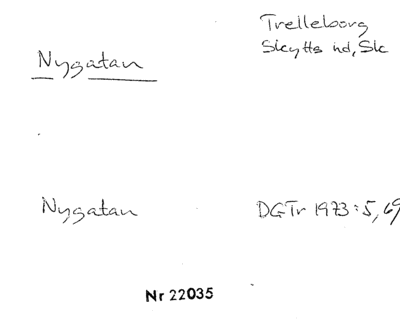 Trelleborg
Skytts hd, Sk
Nygatan
Nygatan DGTr 1973:5, 69
Nr 22035